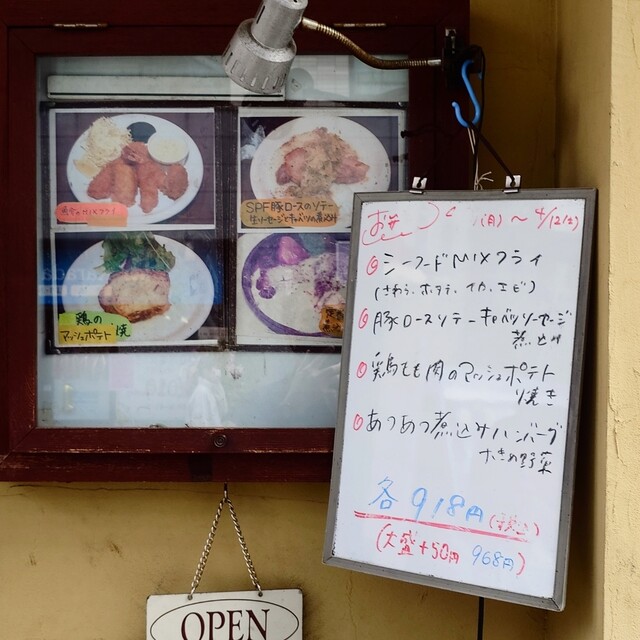 SPF豚ロースのソテー
生ソーセージとキャベツの煮込み
鶏の
マッシュポテト焼
お弁
(月)〜4/12(土)
シーフードMIXフライ
(さわら、ホタテ、イカ、エビ)
豚ロースソテーキャベツソーセージ
煮込み
鶏もも肉のマッシュポテト
焼き
あつあつ煮込みハンバーグ
大きめ野菜
各918円(税込)
(大盛+50円 968円)
OPEN